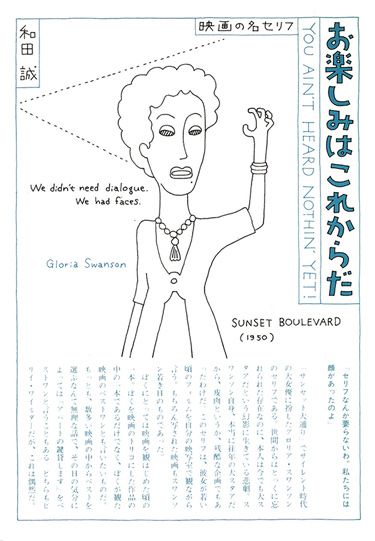 お楽しみはこれからだ
YOU AIN'T HEARD NOTHIN' YET!
映画の名セリフ
和田誠
We didn't need dialogue.
We had faces.
Gloria Swanson
SUNSET BOULEVARD
(1950)
セリフなんか要らないわ。私たちには
顔があったのよ
「サンセット大通り」でサイレント時代
の大女優に扮したグロリア・スワンソン
のセリフである。世間からはとっくに忘
れられた存在なのに、本人は今でも大ス
タアだという幻影に生きている悲劇。ス
ワンソン自身、本当に往年の大スタアだ
から、皮肉というか、残酷な企画でもあ
ったわけだ。このセリフは、彼女が若い
頃のフィルムを自分の映写室で観ながら
言う。もちろん写された映画もスワンソ
ン若き日のものであった。
ぼくにとっては映画を観はじめた頃の
一本、ぼくを映画のトリコにした作品の
中の一本であるだけでなく、ぼくが観た
映画のベストワンとも言いたいものだ。
もっとも、数多い映画の中からベストを
選ぶなんて無理な話で、その日の気分に
よっては「アパートの鍵貸します」をベ
ストワンと言うこともある。どちらもビ
リイ・ワイルダーだが、これは偶然だ。